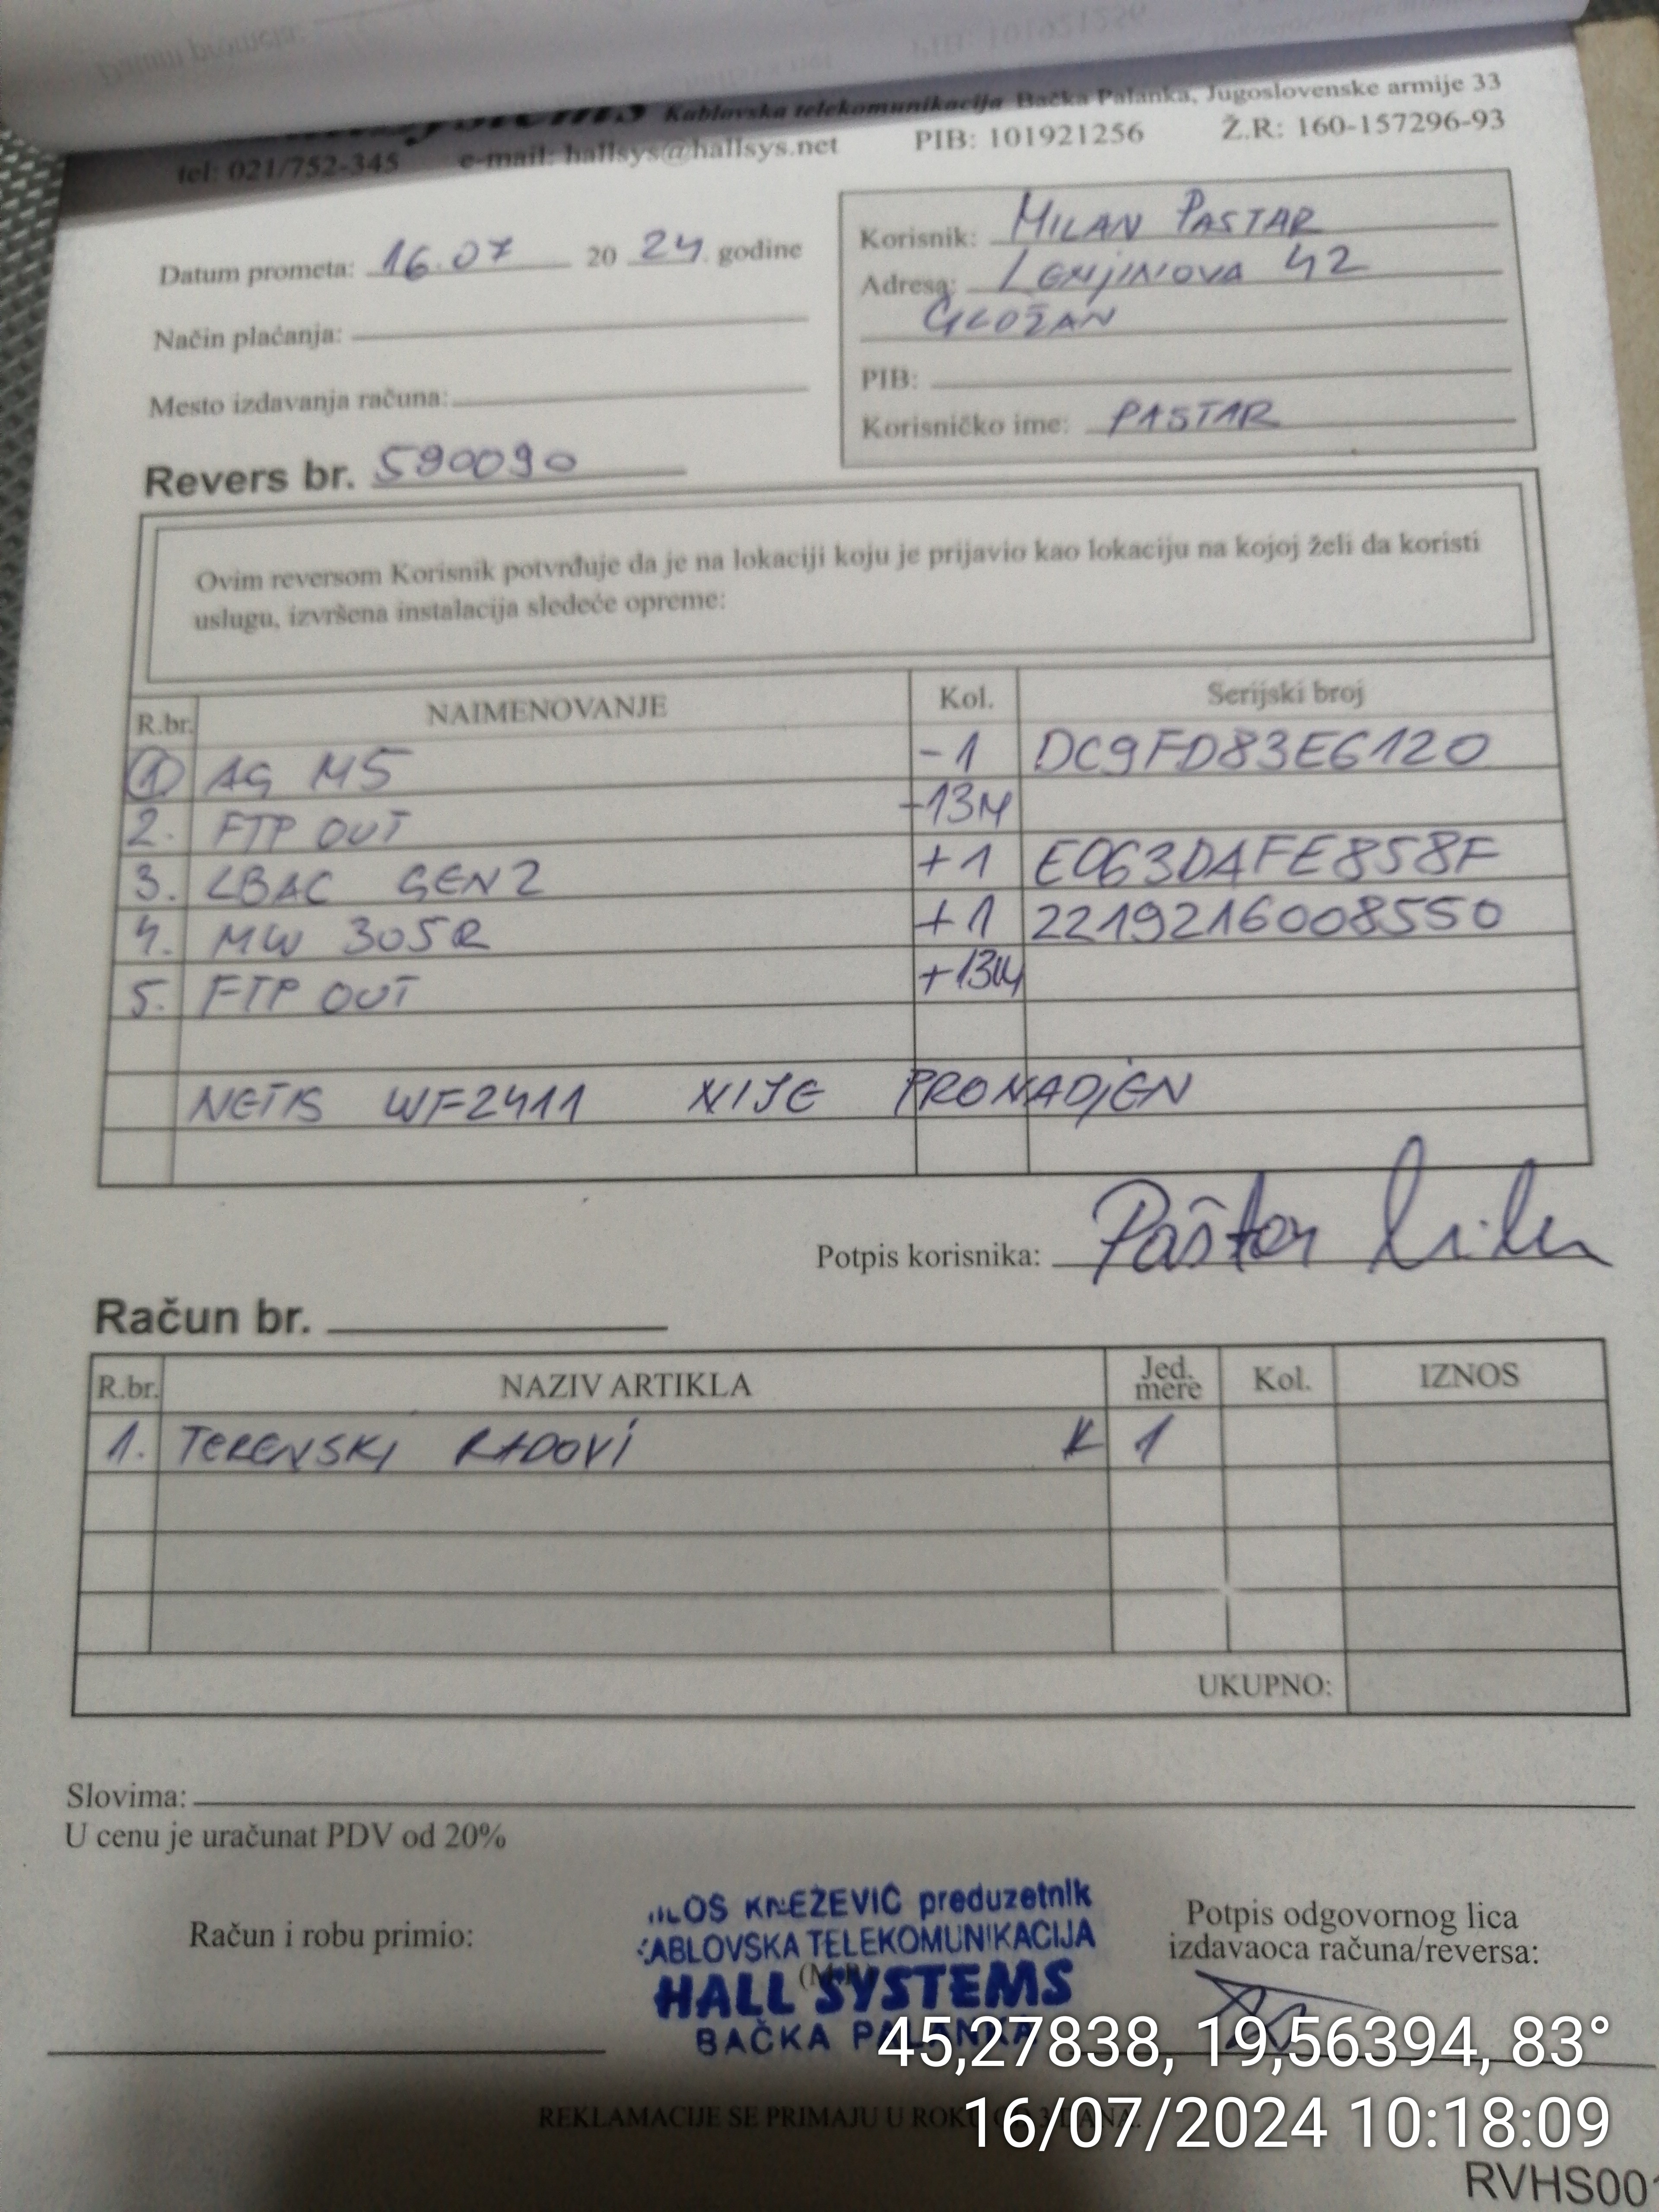 Kablovska telekomunikacija Bačka Palanka, Jugoslovenske armije 33
tel: 021/752-345 e-mail: hallsys@hallsys.net PIB: 101921256 Ž.R: 160-157296-93
Datum prometa: 16.07 20 24. godine
Način plaćanja:
Mesto izdavanja računa:
Revers br. 590090
Korisnik: MILAN PASTAR
Adresa: LENJINOVA 42
GLOŽAN
PIB:
Korisničko ime: PASTAR
Ovim reversom Korisnik potvrđuje da je na lokaciji koju je prijavio kao lokaciju na kojoj želi da koristi
uslugu, izvršena instalacija sledeće opreme:
R.br. NAIMENOVANJE Kol. Serijski broj
1 AG M5 -1 DC9FD83E6120
2. FTP OUT -13M
3. LBAC GEN2 +1 E063DAFE858F
4. MW 305R +1 2219216008550
5. FTP OUT +13M
NETIS WF2411 NIJE PRONADJEN
Potpis korisnika: Paštar
Račun br.
R.br. NAZIV ARTIKLA Jed. mere Kol. IZNOS
1. TERENSKI RADOVI K 1
UKUPNO:
Slovima:
U cenu je uračunat PDV od 20%
Račun i robu primio:
KNEŽEVIĆ preduzetnik
KABLOVSKA TELEKOMUNIKACIJA
HALL SYSTEMS
BAČKA PALANKA
Potpis odgovornog lica
izdavaoca računa/reversa:
45,27838, 19,56394, 83°
REKLAMACIJE SE PRIMAJU U ROKU
16/07/2024 10:18:09
RVHS001